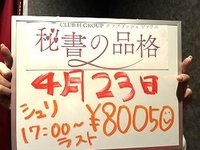 CLUB H GROUP
秘書の品格
4月23日
シュリ
17:00~
ラスト
¥80050